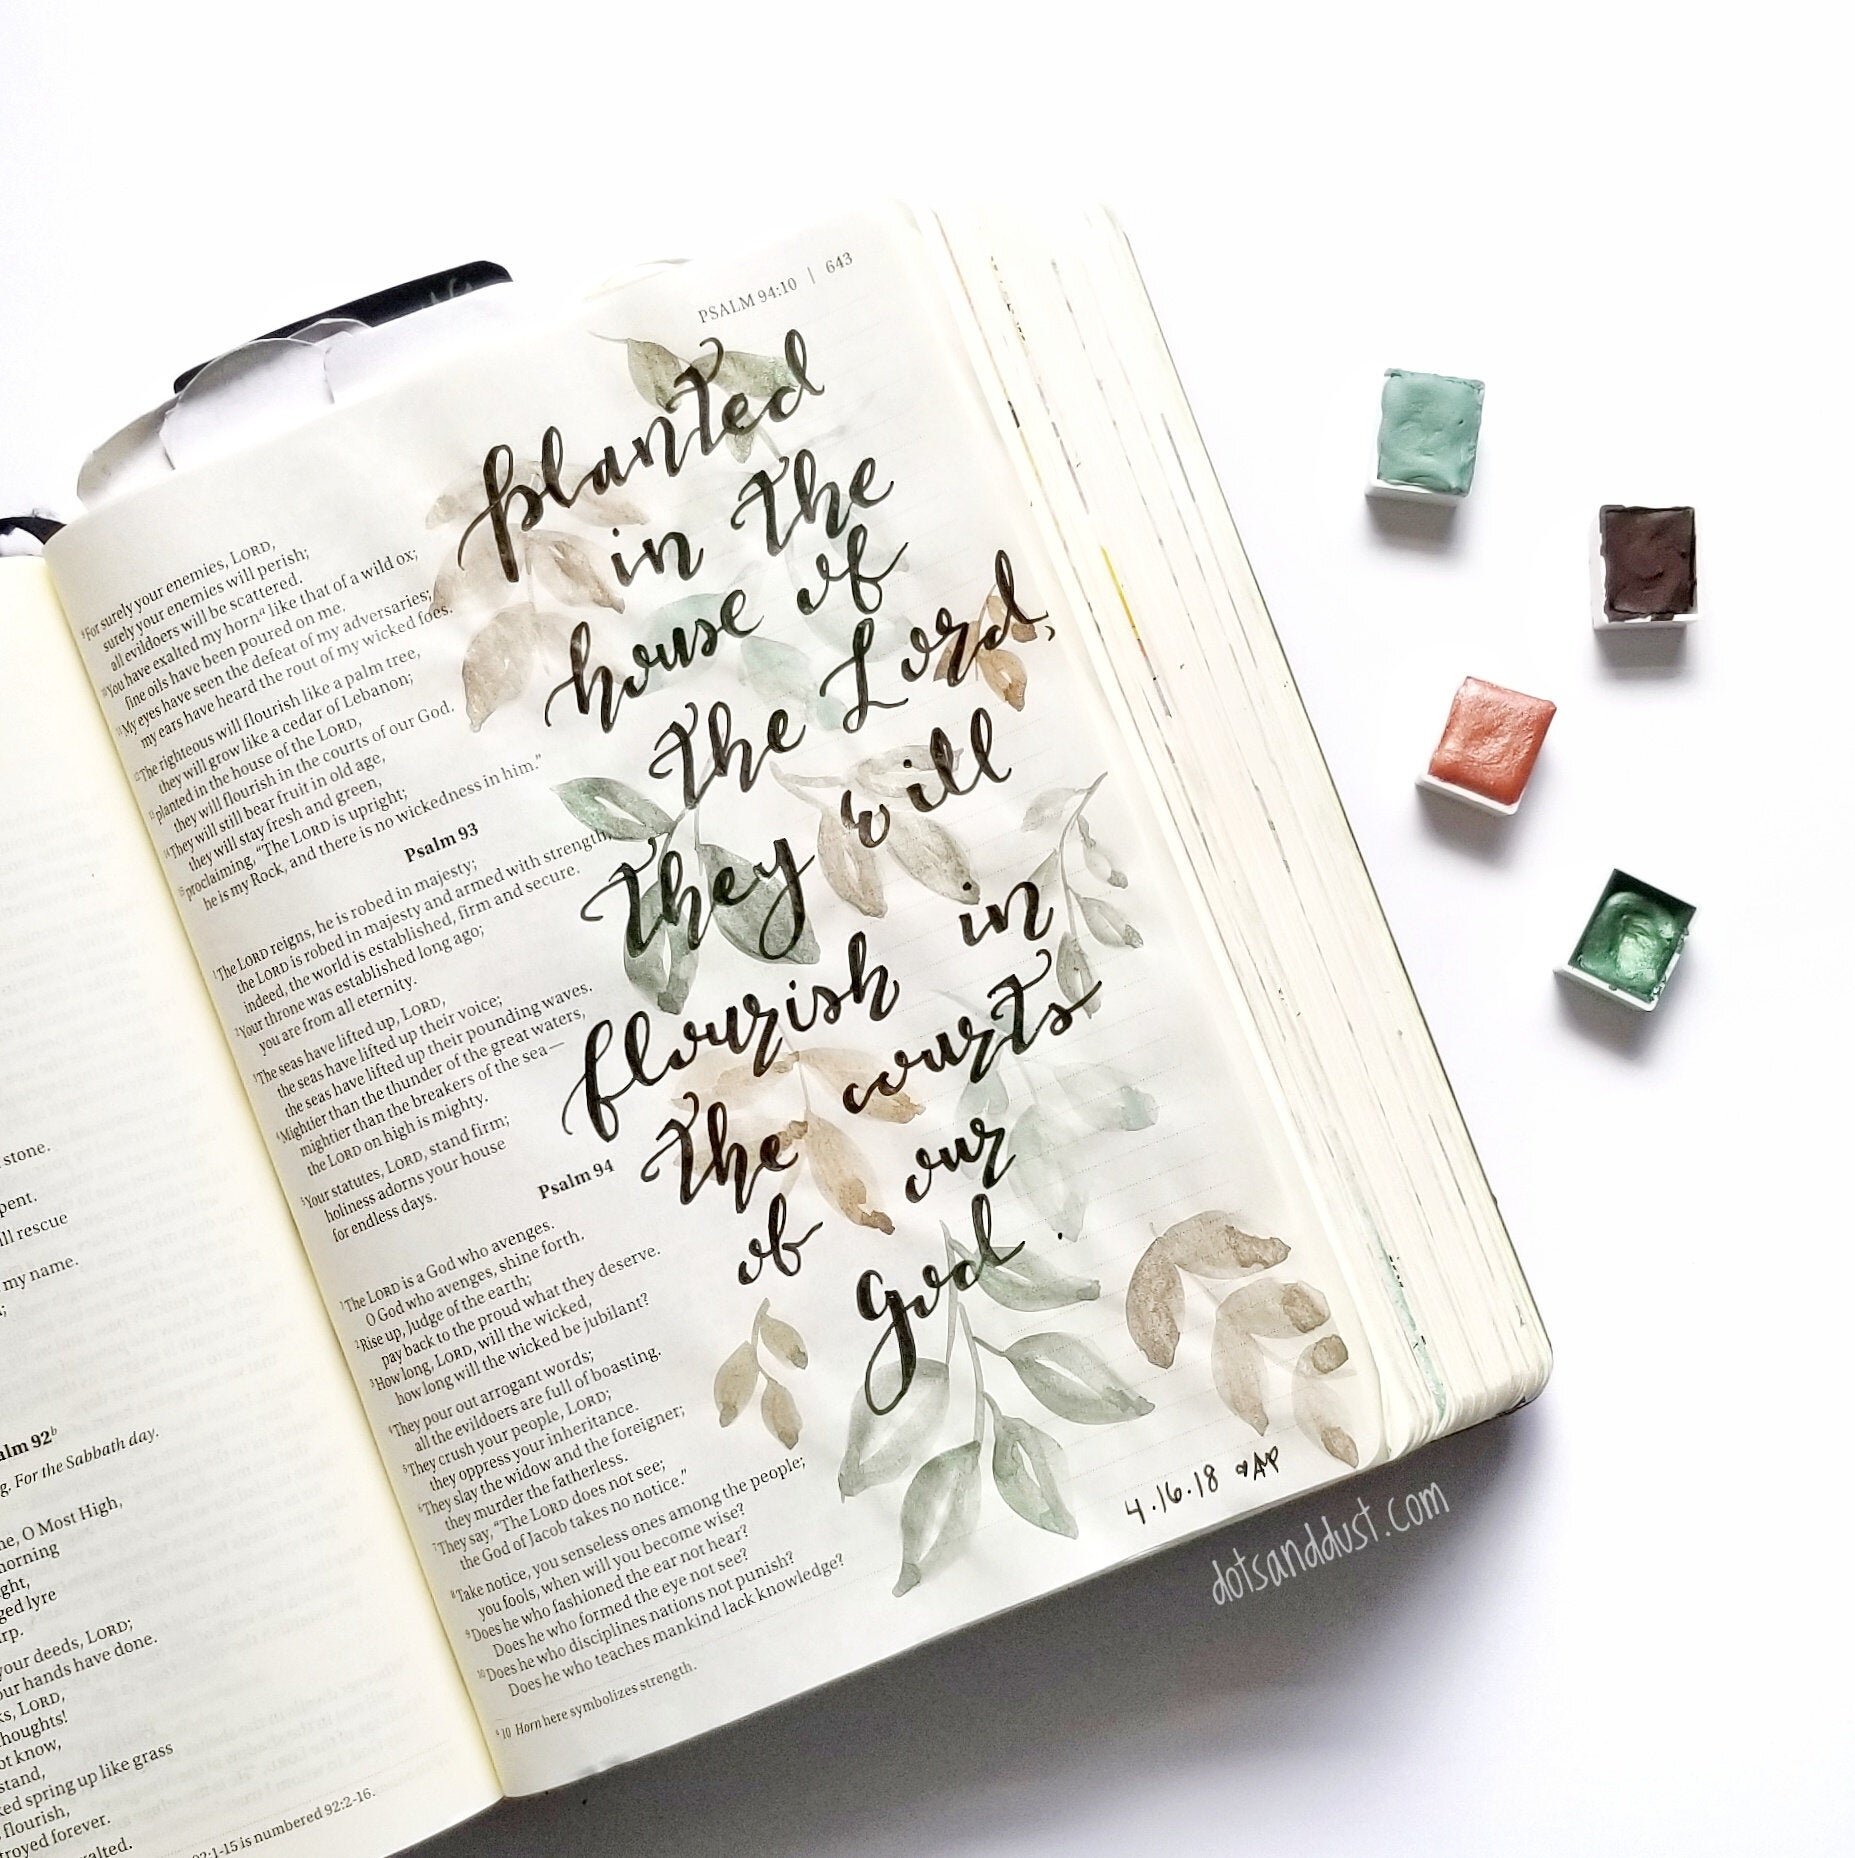 stone.
pent.
ll rescue
my name.
alm 92b
g. For the Sabbath day.
ne, O Most High,
norning
ght,
ged lyre
rp.
your deeds, LORD;
our hands have done.
ks, LORD,
houghts!
ot know,
stand,
ked spring up like grass
flourish,
troyed forever.
xalted.
92:1-15 is numbered 92:2-16.
PSALM 94:10 | 643
9For surely your enemies, LORD,
surely your enemies will perish;
all evildoers will be scattered.
10You have exalted my horna like that of a wild ox;
fine oils have been poured on me.
11My eyes have seen the defeat of my adversaries;
my ears have heard the rout of my wicked foes.
12The righteous will flourish like a palm tree,
they will grow like a cedar of Lebanon;
13planted in the house of the LORD,
they will flourish in the courts of our God.
14They will still bear fruit in old age,
they will stay fresh and green,
15proclaiming, “The LORD is upright;
he is my Rock, and there is no wickedness in him.”
Psalm 93
1The LORD reigns, he is robed in majesty;
the LORD is robed in majesty and armed with strength;
indeed, the world is established, firm and secure.
2Your throne was established long ago;
you are from all eternity.
3The seas have lifted up, LORD,
the seas have lifted up their voice;
the seas have lifted up their pounding waves.
4Mightier than the thunder of the great waters,
mightier than the breakers of the sea—
the LORD on high is mighty.
5Your statutes, LORD, stand firm;
holiness adorns your house
for endless days.
Psalm 94
1The LORD is a God who avenges.
O God who avenges, shine forth.
2Rise up, Judge of the earth;
pay back to the proud what they deserve.
3How long, LORD, will the wicked,
how long will the wicked be jubilant?
4They pour out arrogant words;
all the evildoers are full of boasting.
5They crush your people, LORD;
they oppress your inheritance.
6They slay the widow and the foreigner;
they murder the fatherless.
7They say, “The LORD does not see;
the God of Jacob takes no notice.”
8Take notice, you senseless ones among the people;
you fools, when will you become wise?
9Does he who fashioned the ear not hear?
Does he who formed the eye not see?
10Does he who disciplines nations not punish?
Does he who teaches mankind lack knowledge?
a 10 Horn here symbolizes strength.
planted
in the
house of
the Lord,
they will
flourish in
the courts
of our
God.
4.16.18 ♥AP
dotsanddust.com